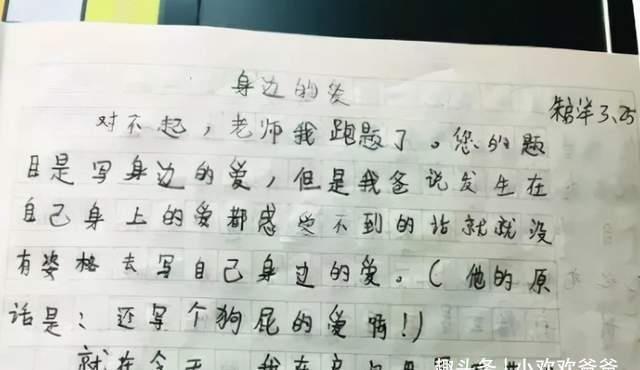 身边的爱
3、25
对不起，老师我跑题了。您的题
目是写身边的爱，但是我爸说发生在
自己身上的爱都感受不到的话就就没
有姿格去写自己身边的爱。（他的原
话是：还写个狗屁的爱啊！）
就在今天，我在
趣头条 | 小欢欢爸爸